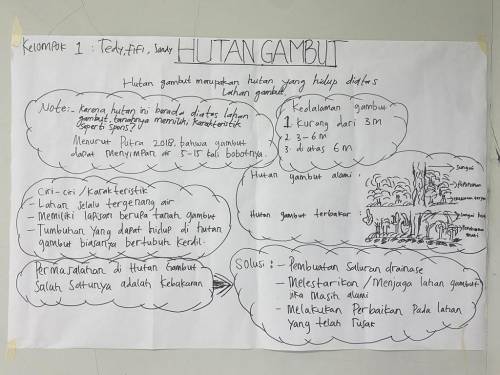 Kelompok 1 : Tedy, FiFi, Sandy
HUTAN GAMBUT
Hutan gambut merupakan hutan yang hidup diatas
Lahan gambut.
Note:- Karena hutan ini berada diatas lahan
gambut, tanahnya memiliki karakteristik
seperti spons?
Menurut Putra 2018. bahwa gambut
dapat menyimpan air 5-15 kali bobotnya.
Kedalaman gambut
1. Kurang dari 3 M
2. 3-6 m
3. di atas 6 m
Ciri-ciri / Karakteristik
- Lahan selalu tergenang air
- Memiliki lapisan berupa tanah gambut
- Tumbuhan yang dapat hidup di hutan
gambut biasanya bertubuh kerdil.
Hutan gambut alami :
Sungai
Hutan gambut terbakar :
Permasalahan di Hutan Gambut
Salah Satunya adalah Kebakaran
Solusi : - Pembuatan Saluran drainase
- Melestarikan / Menjaga lahan gambut
jika Masih alami
- Melakukan Perbaikan Pada lahan
Yang telah rusak